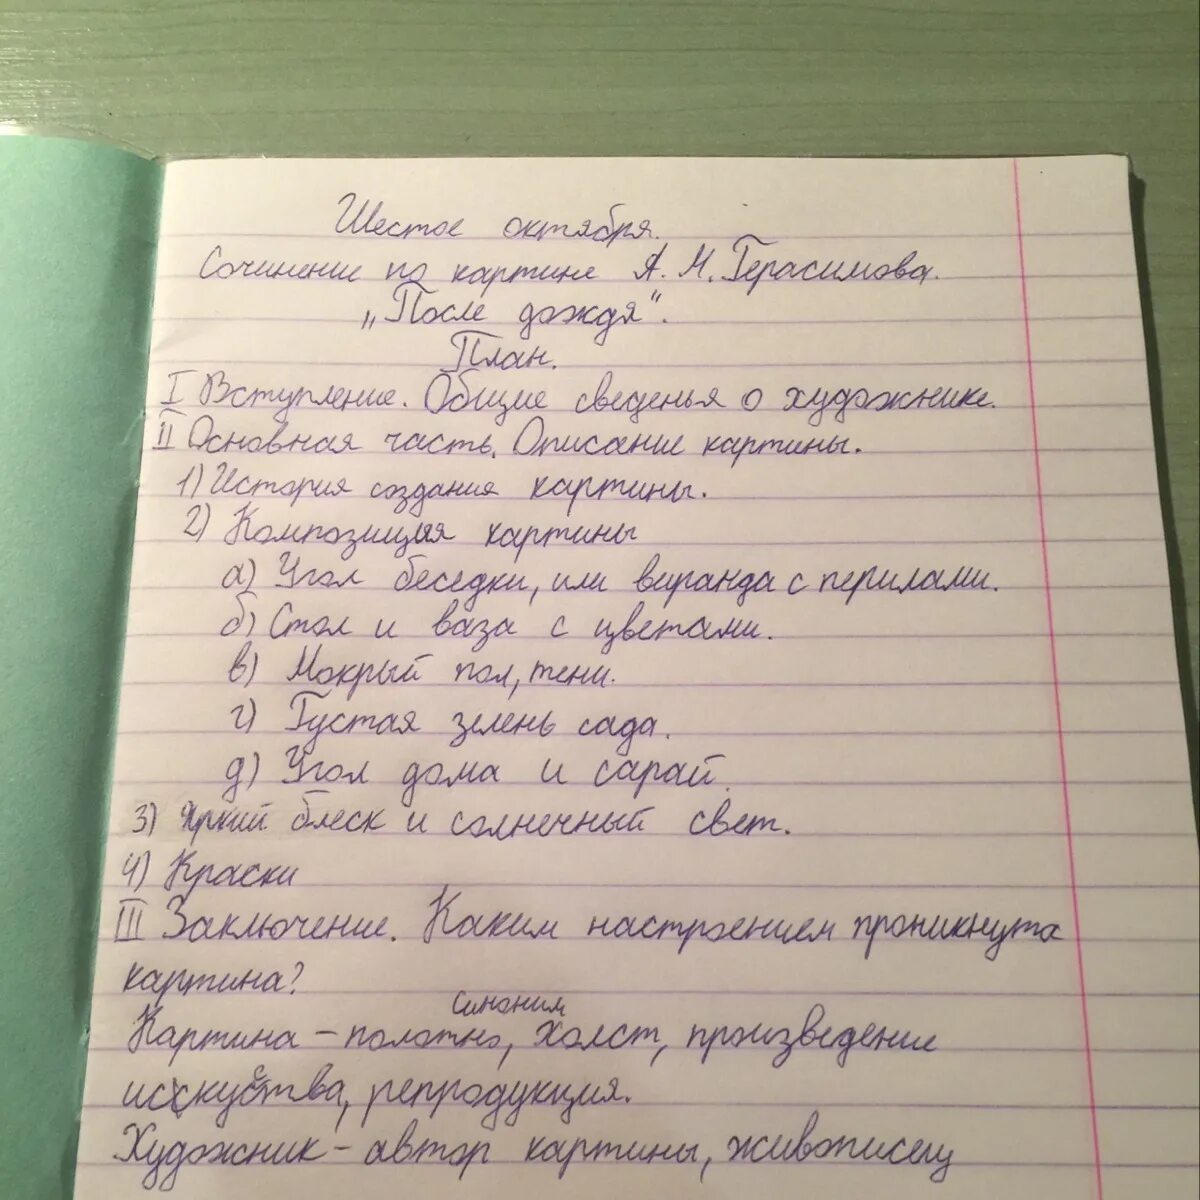 Шестое октября.
Сочинение по картине А. М. Герасимова.
„После дождя".
План.
I Вступление. Общие сведенья о художнике.
II Основная часть. Описание картины.
1) История создания картины.
2) Композиция картины
а) Угол беседки, или виранда с перилами.
б) Стол и ваза с цветами.
в) Мокрый пол, тени.
г) Густая зелень сада.
д) Угол дома и сарай.
3) Яркий блеск и солнечный свет.
4) Краски
III Заключение. Каким настроением проникнута
картина?
синоним
Картина – полотно, холст, произведение
искуства, репродукция.
Художник – автор картины, живописец